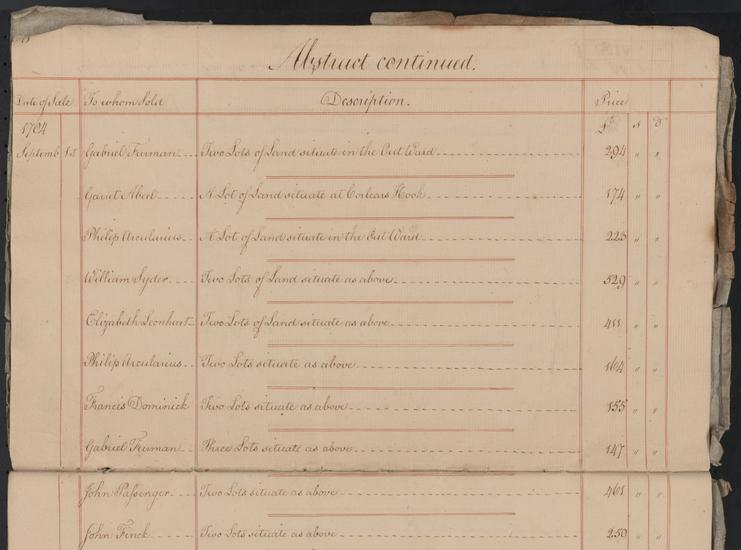 Abstract continued.
Date of Sale To whom Sold Description. Price
1784 £ s d
Septemb 1st Gabriel Furman Two Lots of Land situate in the Out Ward 294 " "
Garret Abeel A Lot of Land situate at Corlears Hook 174 " "
Philip Arcularius A Lot of Land situate in the Out Ward 223 " "
William Syder Two Lots of Land situate as above 529 " "
Elizabeth Leonhart Two Lots of Land situate as above 411 " "
Philip Arcularius Two Lots situate as above 164 " "
Francis Dominick Two Lots situate as above 155 " "
Gabriel Furman Three Lots situate as above 147 " "
John Passenger Two Lots situate as above 461 " "
John Finck Two Lots situate as above 250 " "